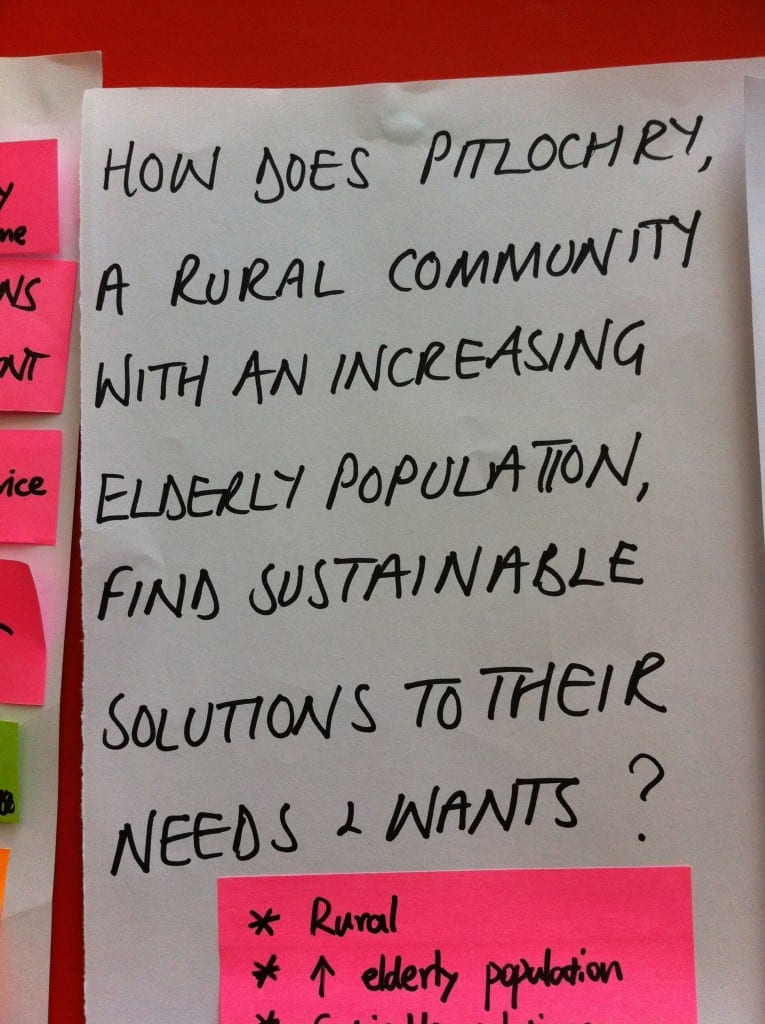 HOW DOES PITLOCHRY,
A RURAL COMMUNITY
WITH AN INCREASING
ELDERLY POPULATION,
FIND SUSTAINABLE
SOLUTIONS TO THEIR
NEEDS & WANTS ?
* Rural
* ↑ elderly population
*